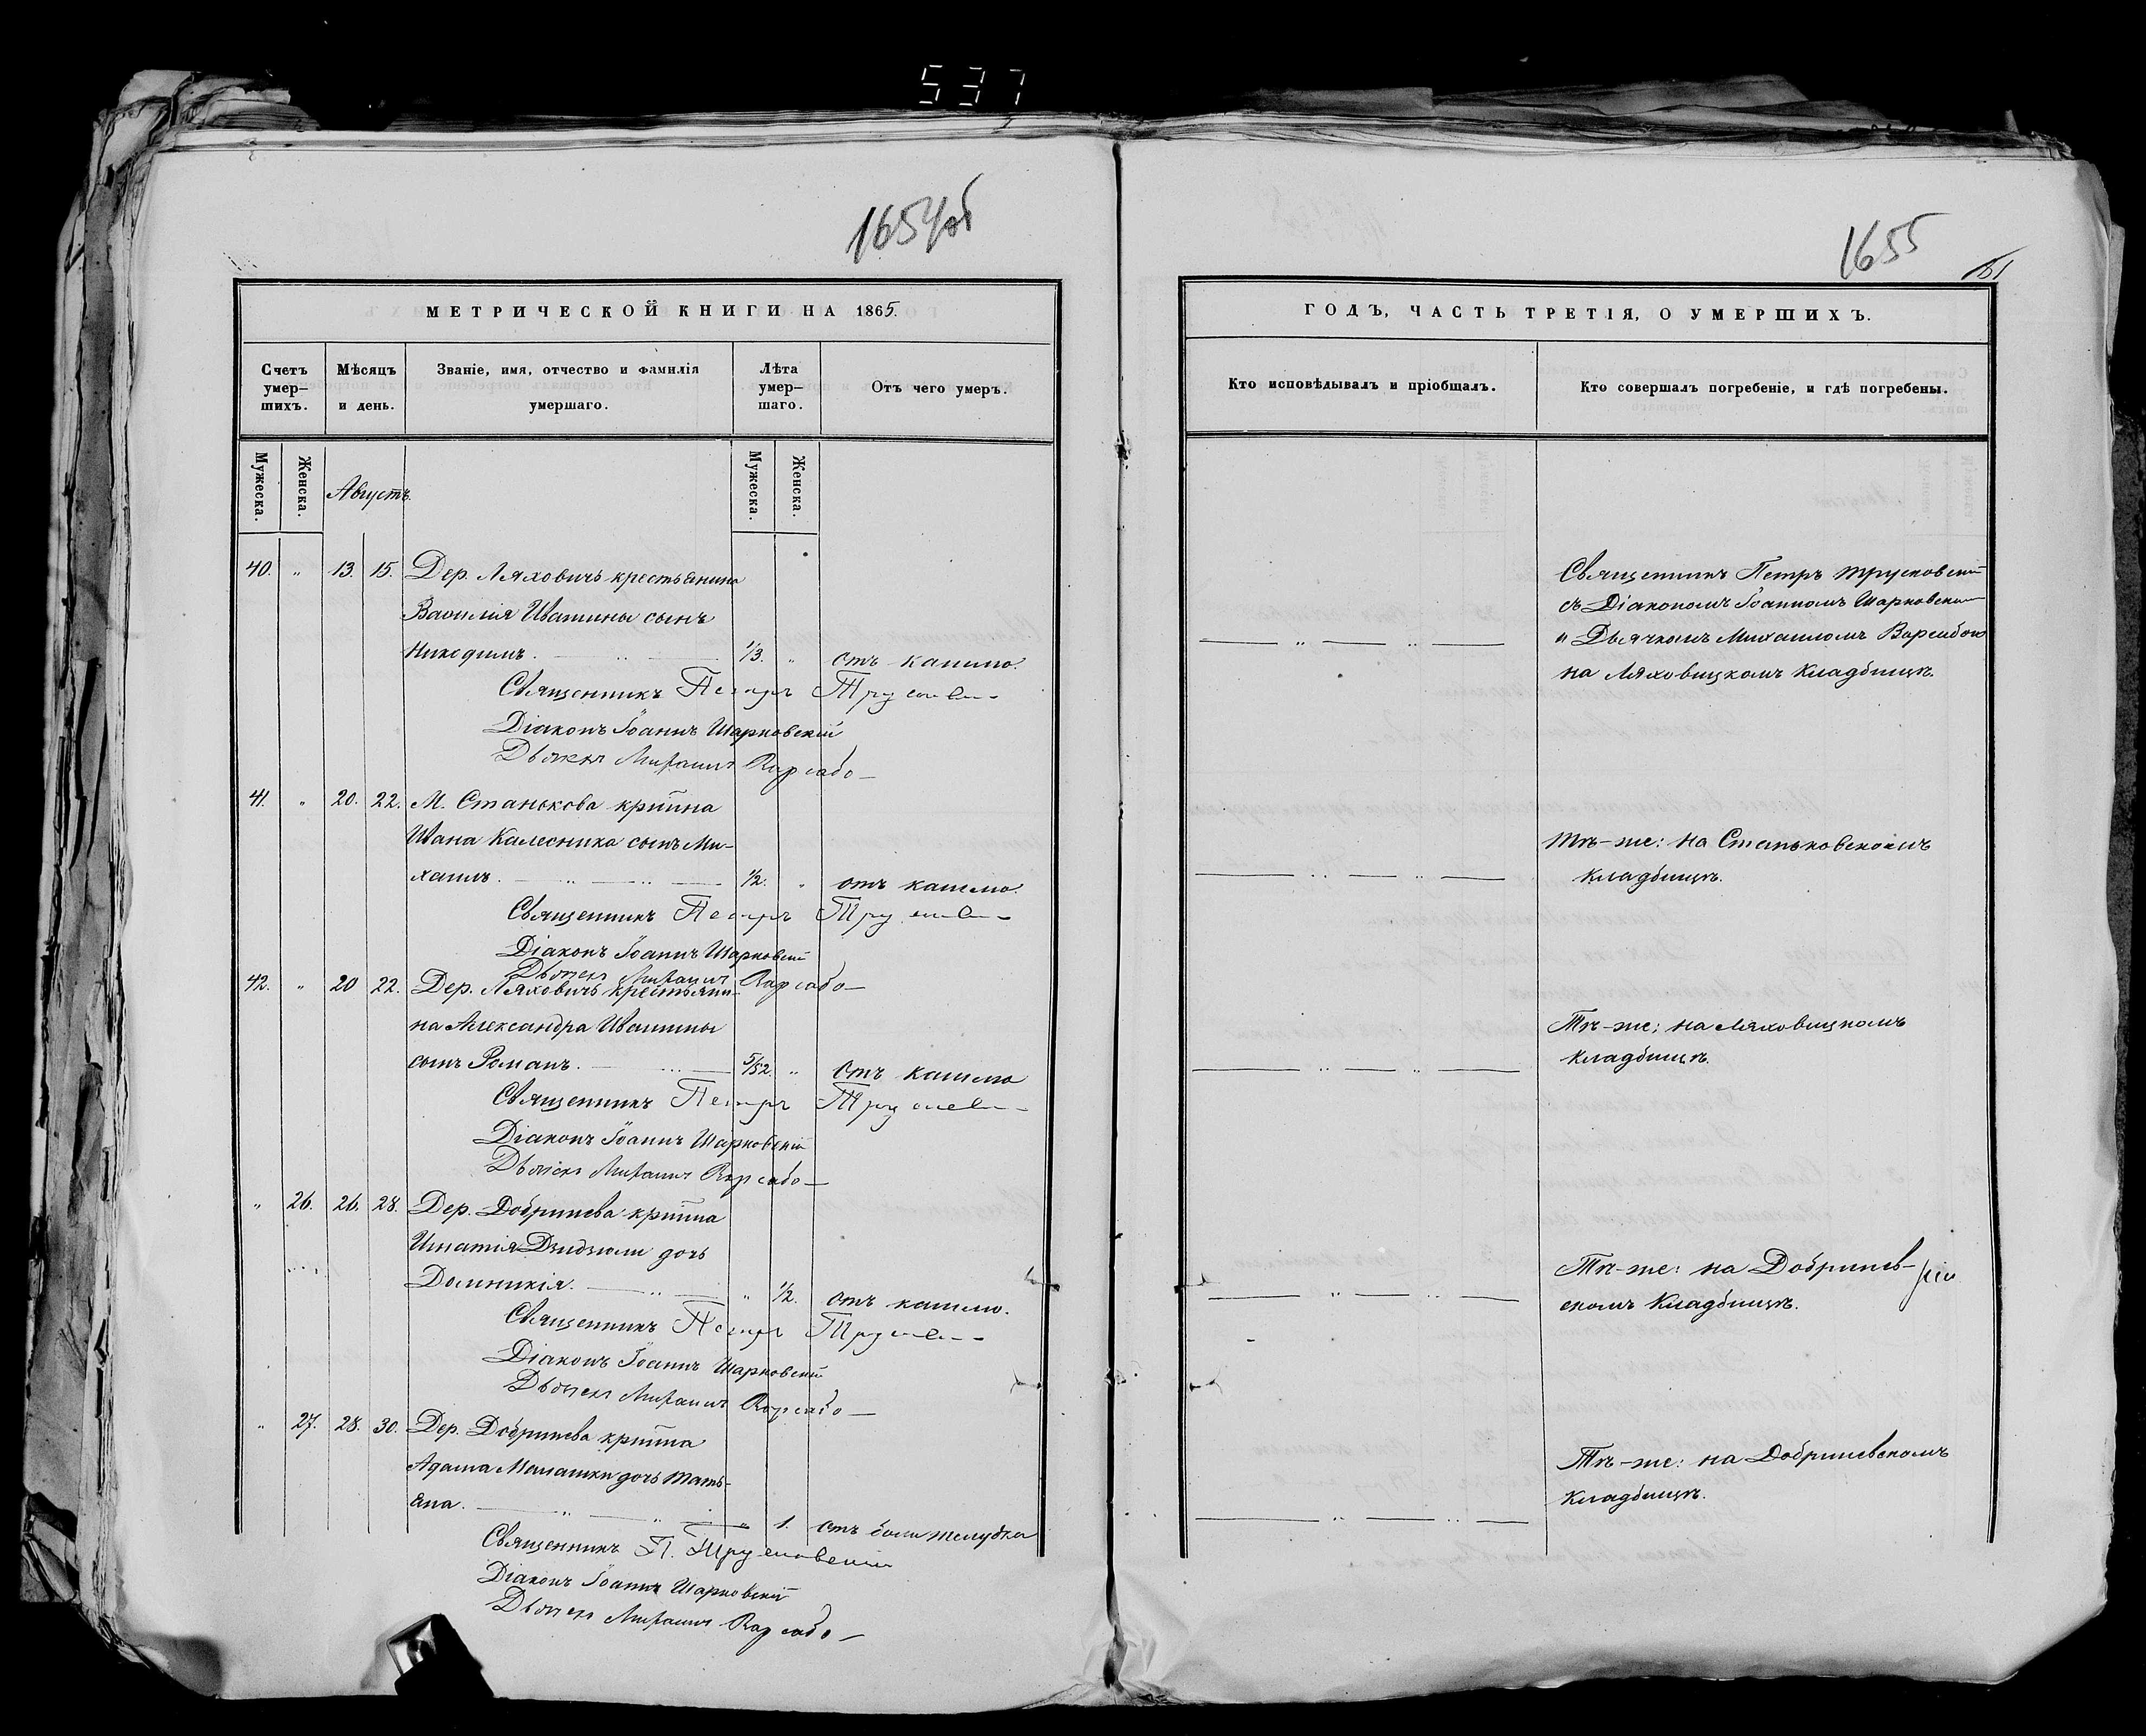 537
1654об
МЕТРИЧЕСКОЙ КНИГИ НА 1865.
Счетъ умер–шихъ.
Мѣсяцъ и день.
Званіе, имя, отчество и фамилія умершаго.
Лѣта умер–шаго.
Отъ чего умеръ.
Мужеска.
Женска.
Августъ.
Мужеска.
Женска.
40. „ 13. 15. Дер. Ляховичъ крестьянина
Василія Ивашины сынъ
Никодимъ. 1/3. „ отъ кашлю.
Священникъ Петръ
Діаконъ Іоаннъ Шарковскій
Дьячекъ Михаилъ
41. „ 20. 22. М. Станькова кр̃нина
Ивана Калесника сынъ Ми–
хаилъ. 1/2. „ отъ кашлю.
Священникъ Петръ
Діаконъ Іоаннъ Шарковскій
Дьячекъ Михаилъ
42. „ 20 22. Дер. Ляховичъ крестьяни–
на Александра Ивашины
сынъ Романъ. 5/52. „ отъ кашлю
Священникъ Петръ
Діаконъ Іоаннъ Шарковскій
Дьячекъ Михаилъ
„ 26. 26. 28. Дер. Добринева кр̃нина
Игнатія Дзидзюли дочь
Домникія. „ 1/2. отъ кашлю.
Священникъ Петръ
Діаконъ Іоаннъ Шарковскій
Дьячекъ Михаилъ
„ 27. 28. 30. Дер. Добринева кр̃нина
Адама Малашки дочь Тать–
яна. „ 1. отъ боли желудка
Священникъ П. Трусковскій
Діаконъ Іоаннъ Шарковскій
Дьячекъ Михаилъ
1655
161
ГОДЪ, ЧАСТЬ ТРЕТІЯ, О УМЕРШИХЪ.
Кто исповѣдывалъ и пріобщалъ.
Кто совершалъ погребеніе, и гдѣ погребены.
Священникъ Петръ Трусковскій
съ Діакономъ Іоанномъ Шарковскимъ
и Дьячкомъ Михаиломъ
на Ляховицкомъ кладбищѣ.
Тѣ–же: на Станьковскомъ
кладбищѣ.
Тѣ–же; на Ляховицкомъ
кладбищѣ.
Тѣ–же: на Добринев–
скомъ кладбищѣ.
Тѣ–же: на Добриневскомъ
кладбищѣ.